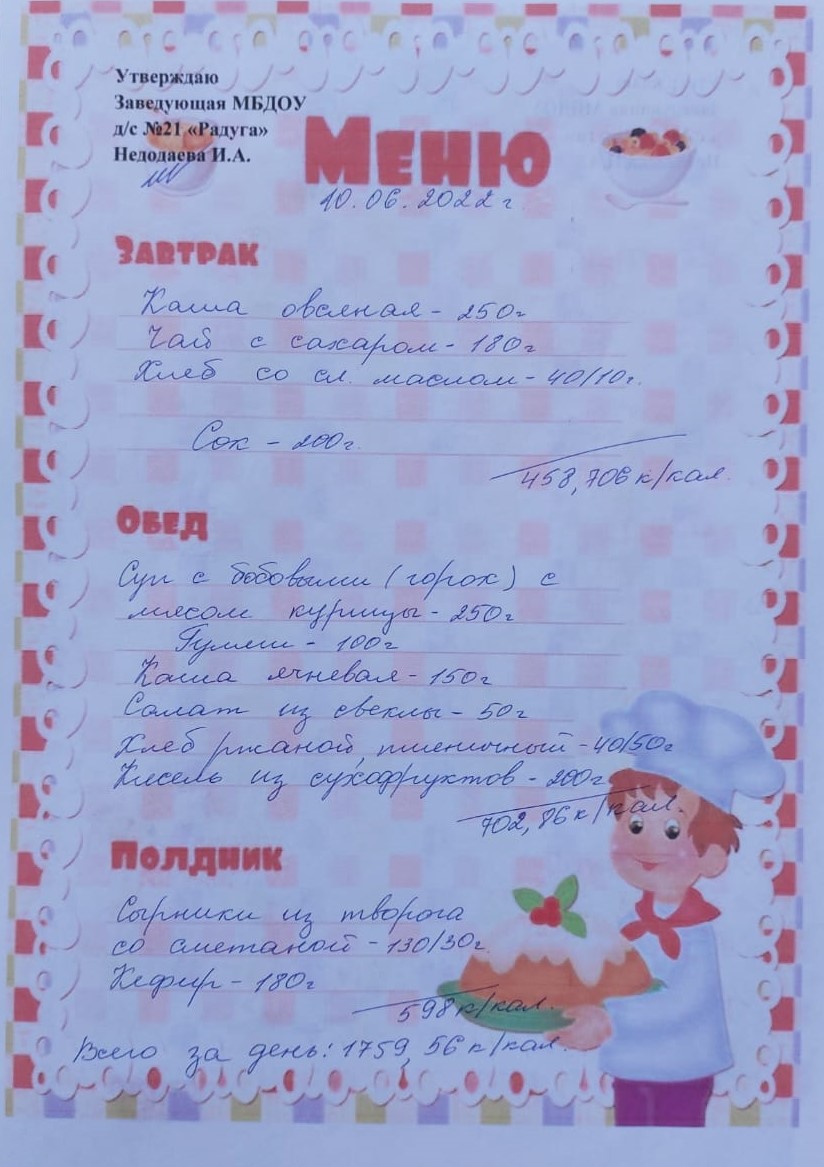 Утверждаю
Заведующая МБДОУ
д/с №21 «Радуга»
Нedодаева И.А.
Меню
10.06.2022 г
Завтрак
Каша овсяная - 250г
Чай с сахаром - 180г
Хлеб со сл. маслом - 40/10г.
Сок - 200г.
458,706 к/кал.
Обед
Суп с бобовыми (горох) с
мясом курицы - 250г
Гуляш - 100г
Каша ячневая - 150г
Салат из свеклы - 50г
Хлеб ржаной, пшеничный - 40/50г
Кисель из сухофруктов - 200г
702,86 к/кал.
Полдник
Сырники из творога
со сметаной - 130/30г.
Кефир - 180г
598 к/кал.
Всего за день: 1759,56 к/кал.